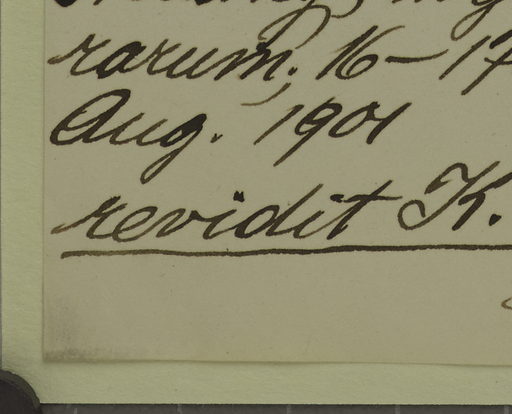 rarum; 16-17
Aug. 1901
revidit K.